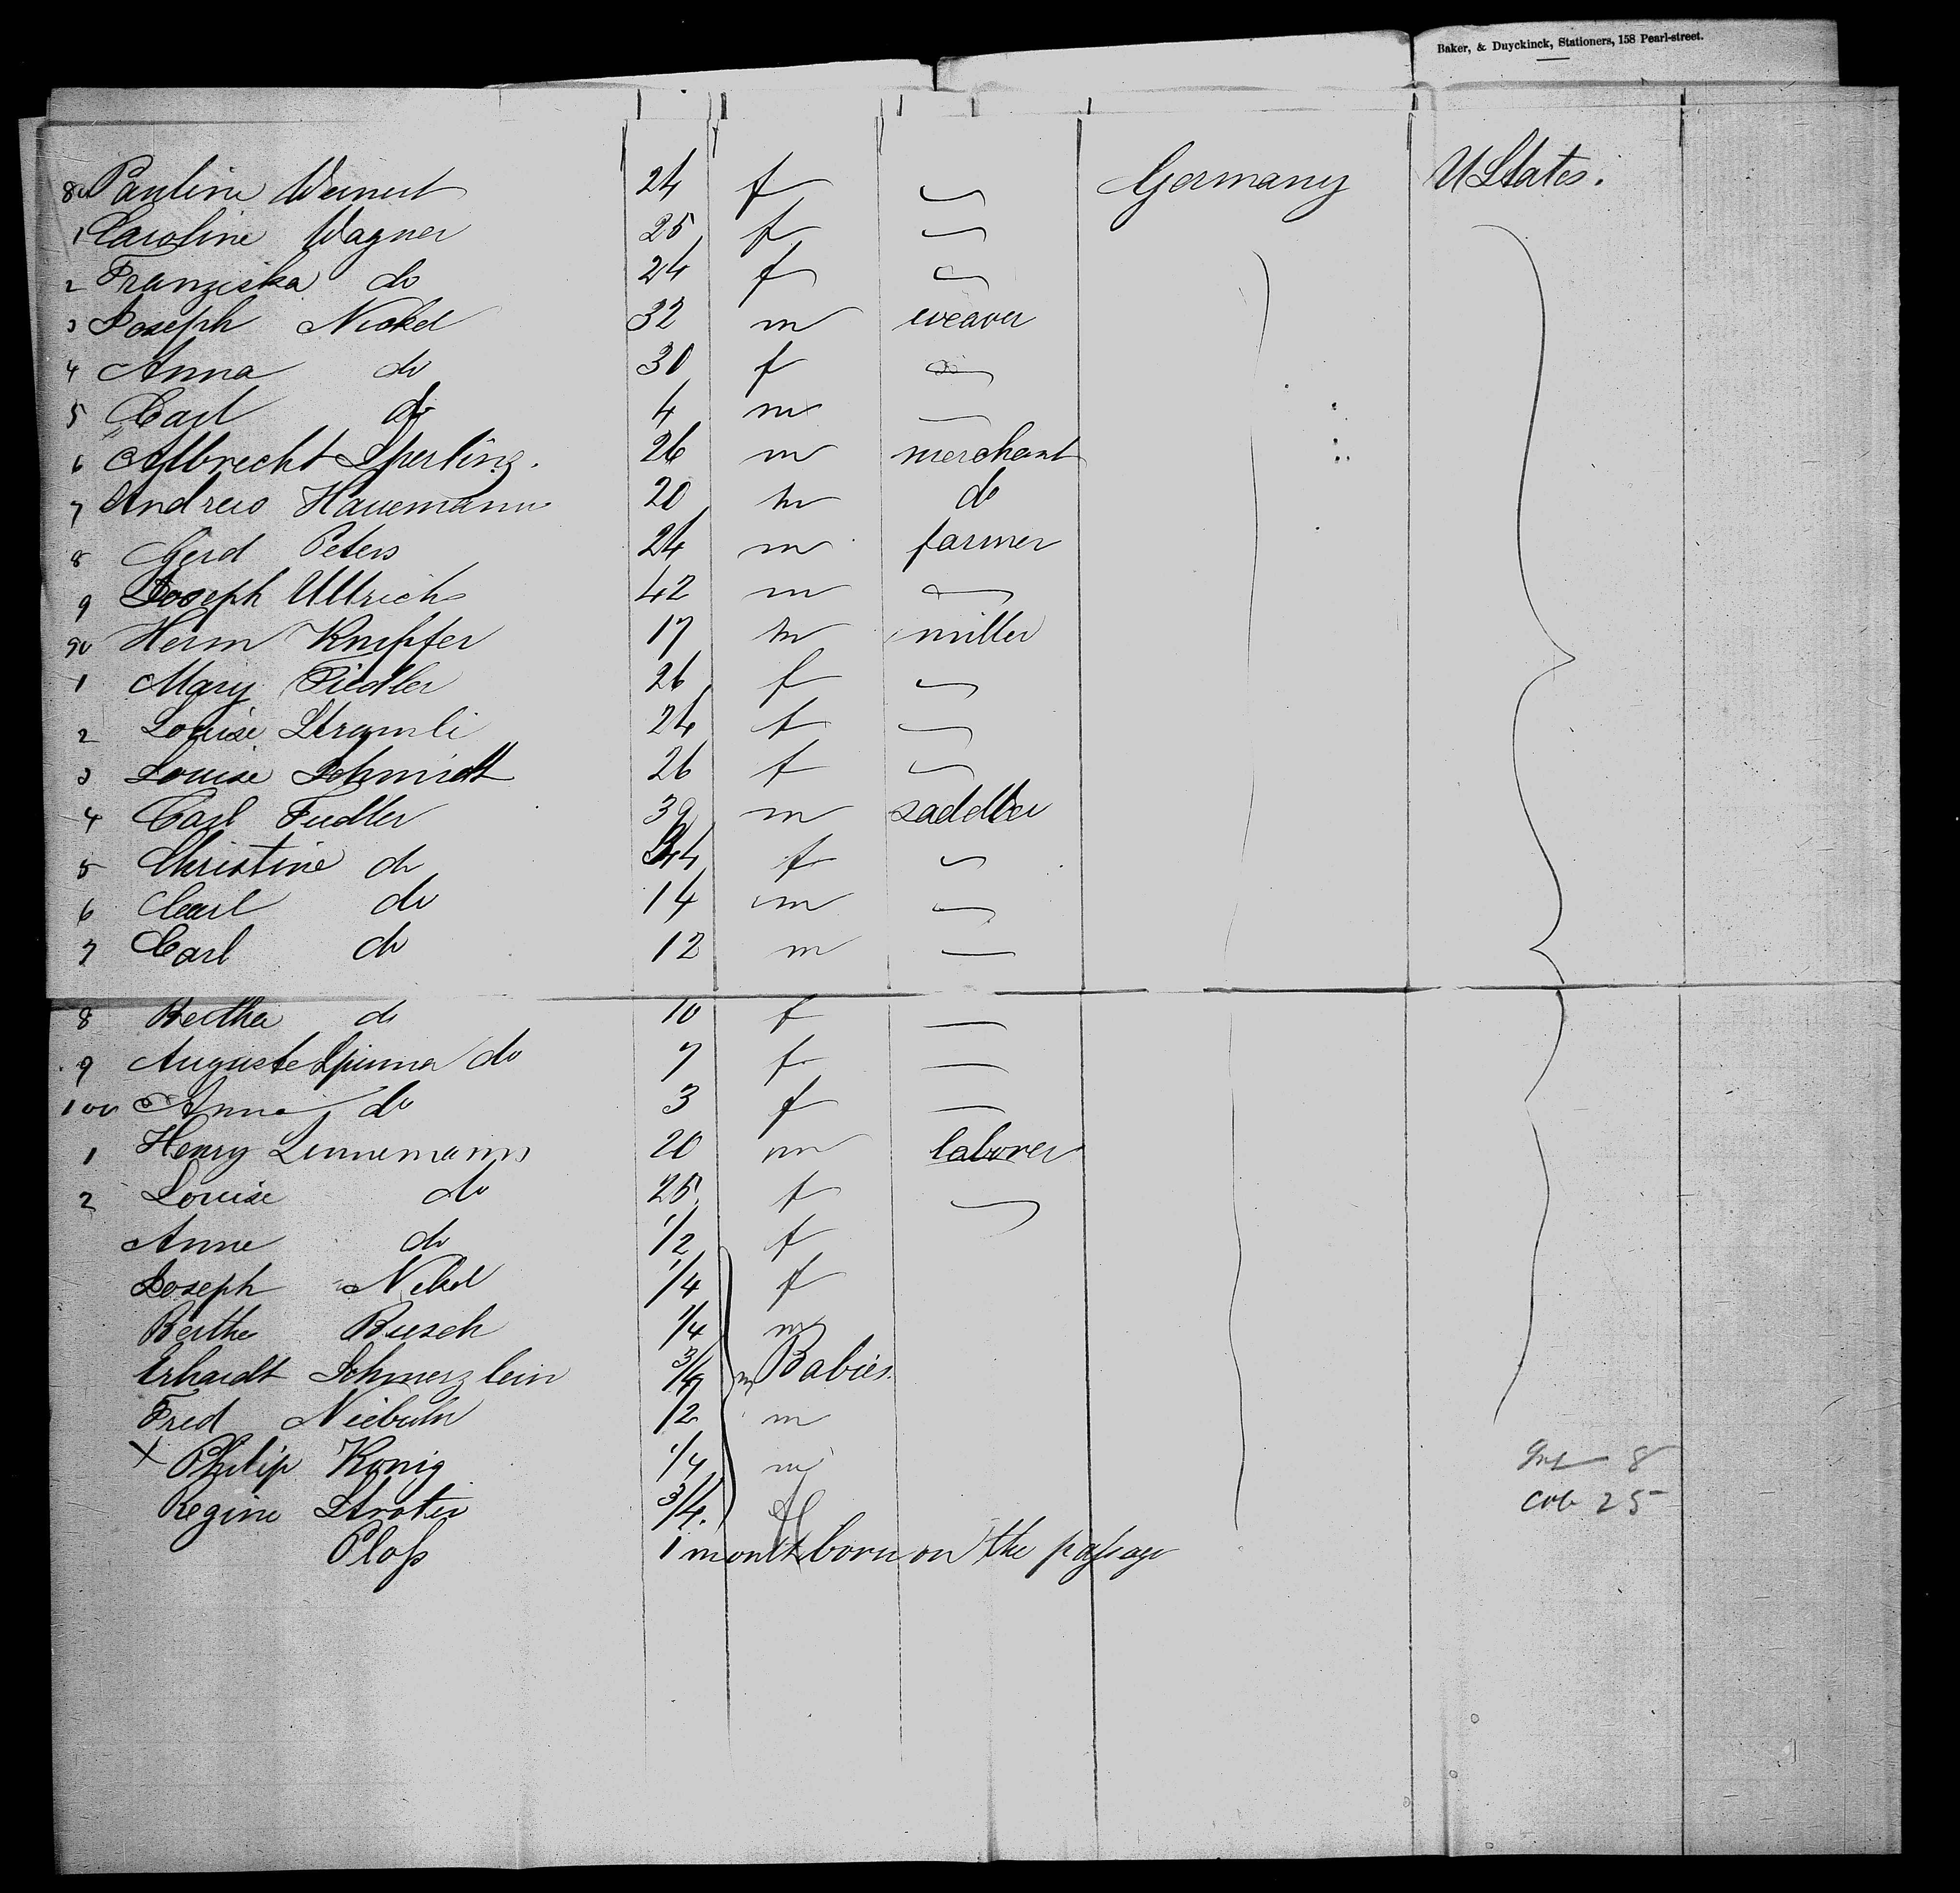 Baker, & Duyckinck, Stationers, 158 Pearl-street.
80 Pauline Weinert 24 f Germany UStates.
1 Caroline Wagner 25 f
2 Franziska do 24 f
3 Joseph Nickel 32 m weaver
4 Anna do 30 f
5 Carl do 4 m
6 Albrecht Sperling. 26 m merchant
7 Andreas Hanemann 20 m do
8 Gerd Peters 24 m farmer
9 Joseph Ullrich 42 m
90 Herm Knipfer 17 m miller
1 Mary Fiedler 26 f
2 Louise 24 f
3 Louise Schmidt 26 f
4 Carl Fiedler 39 m saddler
5 Christine do 44 f
6 Carl do 14 m
7 Carl do 12 m
8 Bertha do 10 f
9 Auguste do 7 f
100 Anna do 3 f
1 Henry Linnemann 20 m laborer
2 Louise do 25 f
Anne do 1/2 f
Joseph 1/4 f
Berthe Busch 1/4 m
Erhardt Schmerzlein 3/4 m Babies.
Fred Niebuhr 1/2 m
x Philip Konig 1/4 m
Regine Stroter 3/4. f
8
25
Ploss 1 month born on the passage